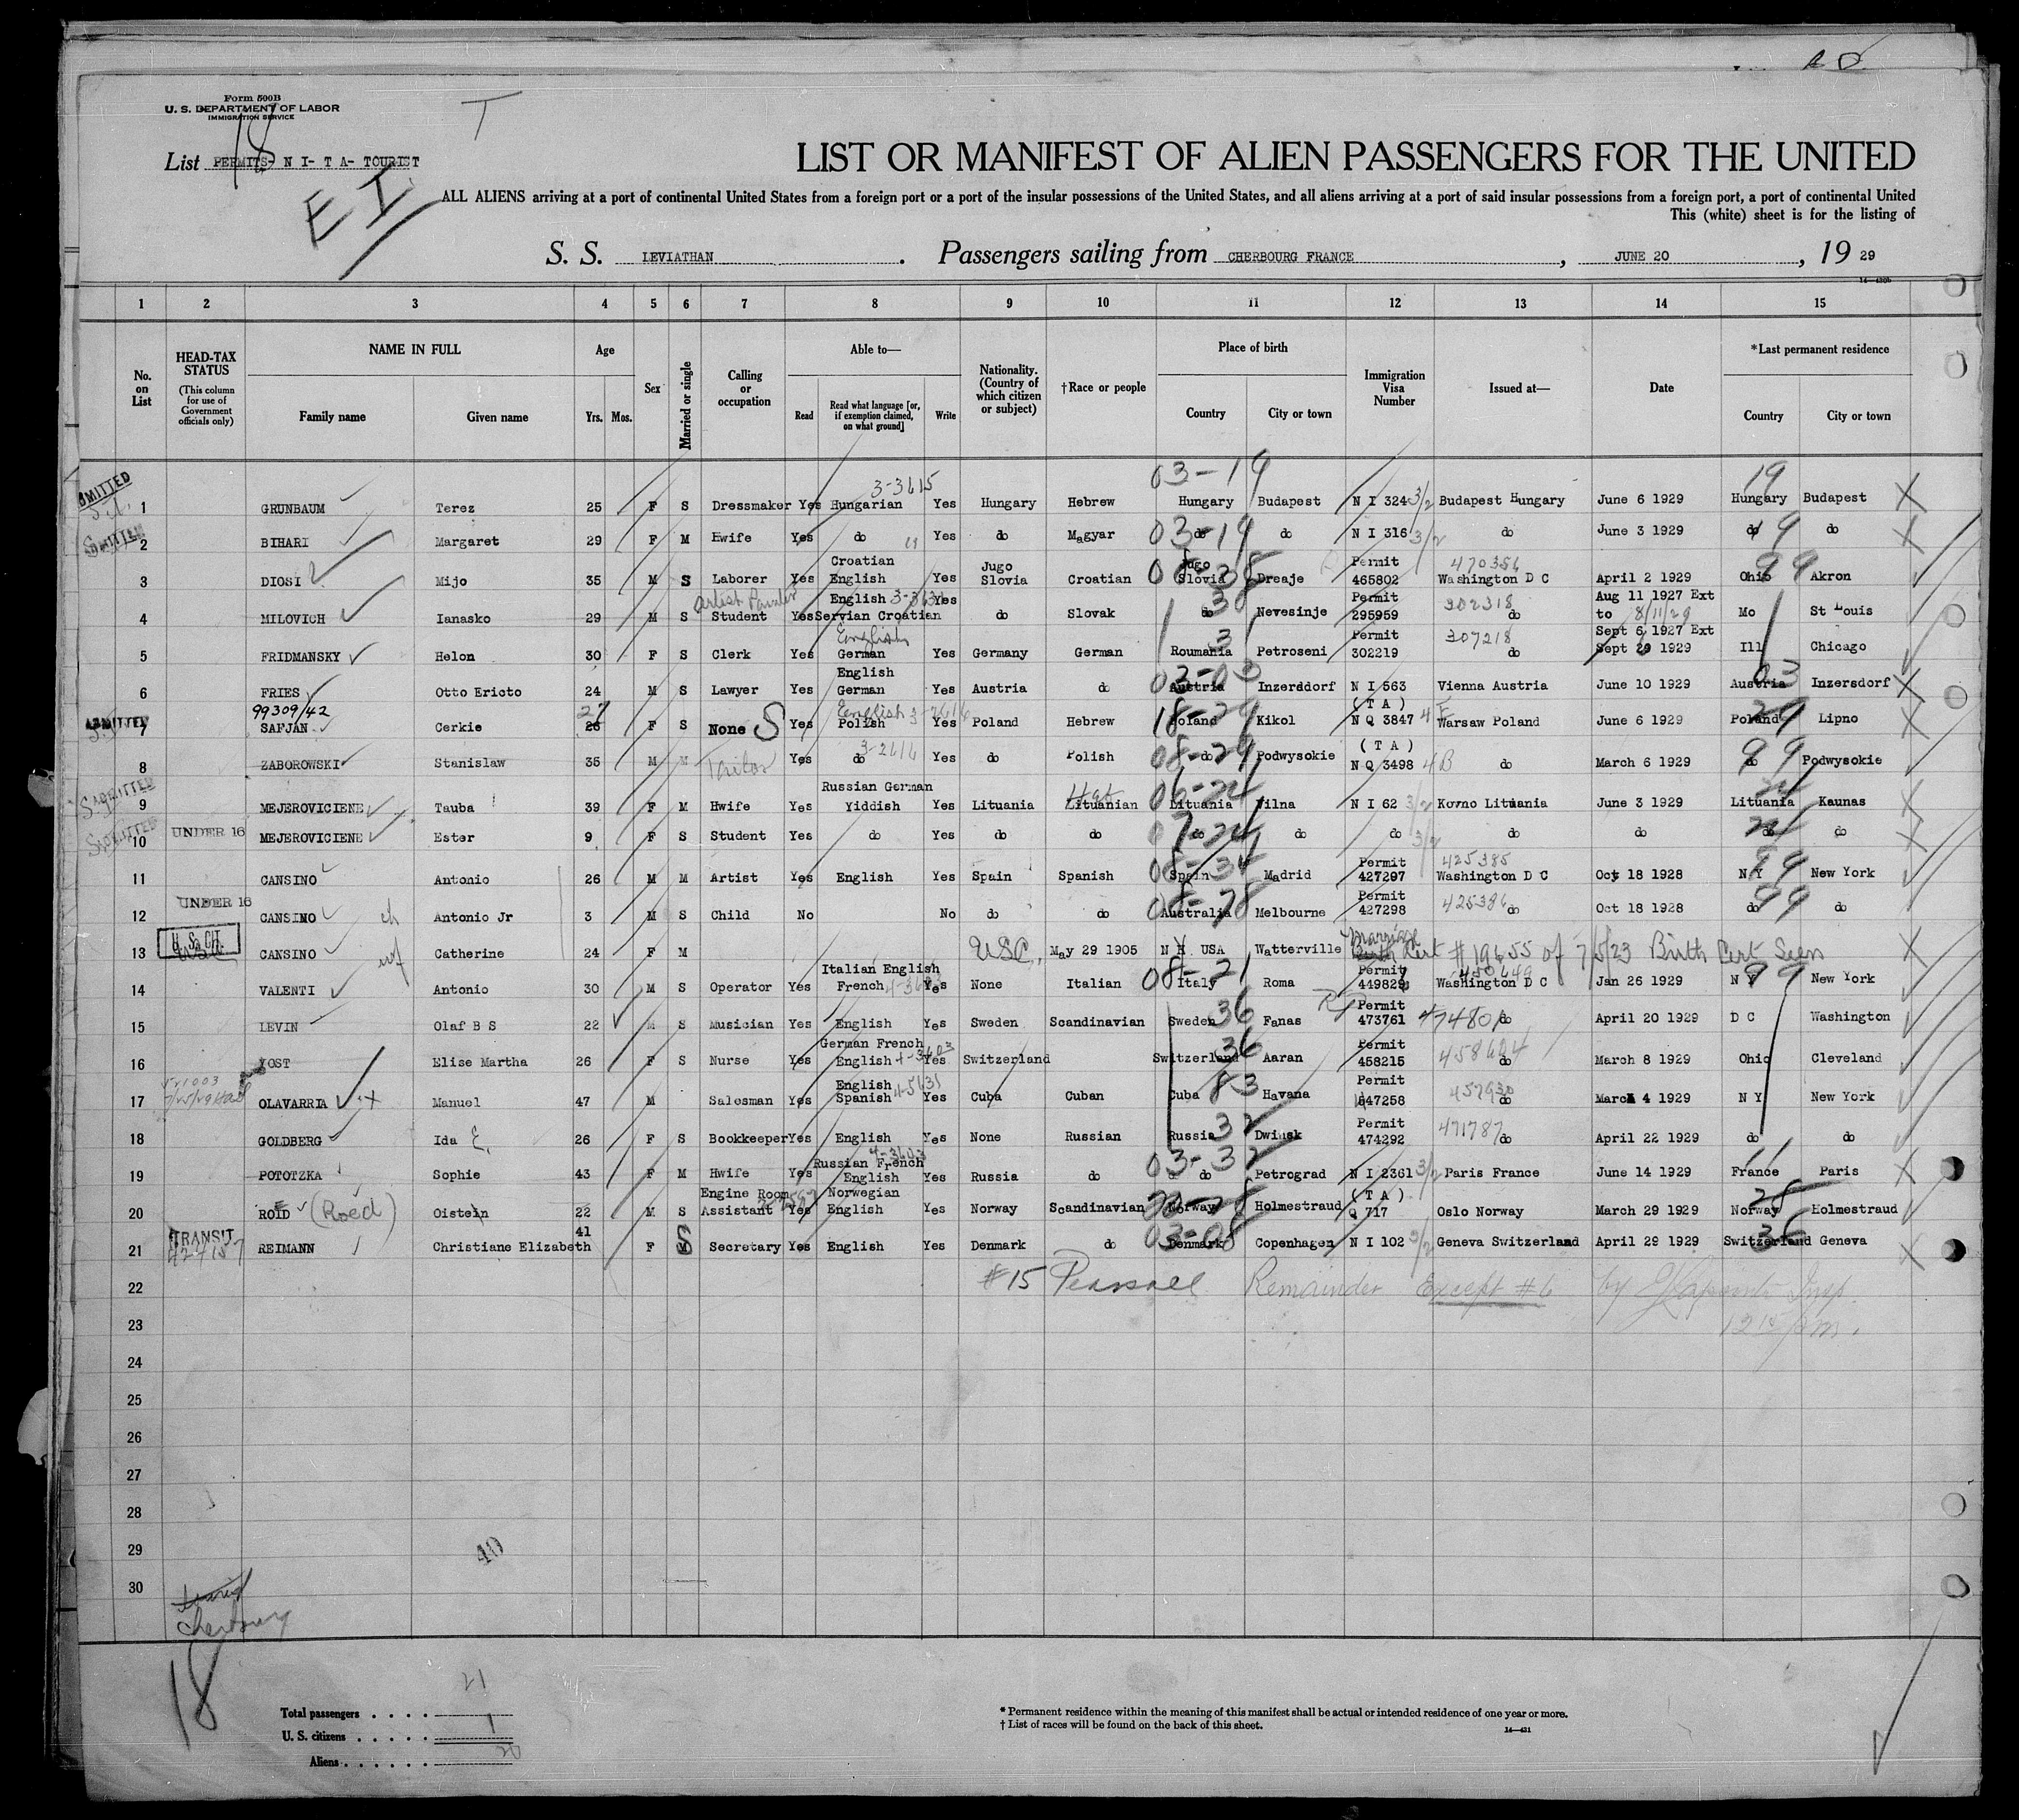 Form 500B
U. S. DEPARTMENT OF LABOR
IMMIGRATION SERVICE
T
18
List PERMITS- N I- T A- TOURIST
E I
LIST OR MANIFEST OF ALIEN PASSENGERS FOR THE UNITED
ALL ALIENS arriving at a port of continental United States from a foreign port or a port of the insular possessions of the United States, and all aliens arriving at a port of said insular possessions from a foreign port, a port of continental United
This (white) sheet is for the listing of
S. S. LEVIATHAN . Passengers sailing from CHERBOURG FRANCE , JUNE 20 , 19 29
14-430b
1 2 3 4 5 6 7 8 9 10 11 12 13 14 15
No. on List
HEAD-TAX STATUS (This column for use of Government officials only)
NAME IN FULL Family name Given name
Age Yrs. Mos.
Sex
Married or single
Calling or occupation
Able to— Read Read what language [or, if exemption claimed, on what ground] Write
Nationality. (Country of which citizen or subject)
†Race or people
Place of birth Country City or town
Immigration Visa Number
Issued at—
Date
*Last permanent residence Country City or town
03-19 19
3-3615
1 GRUNBAUM Terez 25 F S Dressmaker Yes Hungarian Yes Hungary Hebrew Hungary Budapest N I 324 3/2 Budapest Hungary June 6 1929 Hungary Budapest X
2 BIHARI Margaret 29 F M Hwife Yes do Yes do Magyar 03-19 do do N I 316 3/2 do June 3 1929 do 19 do X
3 DIOSI Mijo 35 M S Laborer Yes Croatian English Yes Jugo Slovia Croatian Jugo Slovia Dreaje Permit 465802 470356 Washington D C April 2 1929 Ohio 99 Akron
4 MILOVICH Ianasko 29 M S Artist Painter Student Yes English Servian Croatian Yes do Slovak do Nevesinje Permit 295959 302318 do Aug 11 1927 Ext to 8/11/29 Mo St Louis
5 FRIDMANSKY Helon 30 F S Clerk Yes English German Yes Germany German 3 Roumania Petroseni Permit 302219 307218 do Sept 6 1927 Ext Sept 29 1929 Ill Chicago
6 FRIES Otto Ericto 24 M S Lawyer Yes English German Yes Austria do 03-03 Austria Inzerddorf N I 563 Vienna Austria June 10 1929 Austria 03 Inzersdorf X
99309/42
7 SAFJAN Cerkie 26 27 F S None S Yes English Polish 3-2616 Yes Poland Hebrew 18-29 Poland Kikol (T A) N Q 3847 Warsaw Poland June 6 1929 Poland 29 Lipno X
8 ZABOROWSKI Stanislaw 35 M M Yes 3-2616 do Yes do Polish 08-29 do Podwysokie (T A) N Q 3498 4B do March 6 1929 do 99 Podwysokie
9 MEJEROVICIENE Tauba 39 F M Hwife Yes Russian German Yiddish Yes Lituania Lituanian Lituania Vilna N I 62 3/2 Kovno Lituania June 3 1929 Lituania Kaunas X
10 UNDER 16 MEJEROVICIENE Ester 9 F S Student Yes do Yes do do do do do 3/2 do do do do X
11 CANSINO Antonio 26 M M Artist Yes English Yes Spain Spanish 08-34 Spain Madrid Permit 427297 425385 Washington D C Oct 18 1928 N Y 99 New York
12 UNDER 16 CANSINO ch Antonio Jr 3 M S Child No No do do 08-78 Australia Melbourne Permit 427298 425386 do Oct 18 1928 do 99 do
13 U. S. CIT. CANSINO wf Catherine 24 F M USC. May 29 1905 N H USA Watterville Marriage Cert #19655 of 7/5/23 Birth Cert Seen X
14 VALENTI Antonio 30 M S Operator Yes Italian English French Yes None Italian 08-21 Italy Roma Permit 449829 450649 Washington D C Jan 26 1929 N Y 99 New York
15 LEVIN Olaf B S 22 M S Musician Yes English Yes Sweden Scandinavian 36 Sweden Fanas Permit 473761 do April 20 1929 D C Washington
16 YOST Elise Martha 26 F S Nurse Yes German French English Yes Switzerland 36 Switzerland Aaran Permit 458215 458624 March 8 1929 Ohio Cleveland
17 OLAVARRIA Manuel 47 M Salesman Yes English Spanish Yes Cuba Cuban Cuba 83 Havana Permit 447258 457930 do March 4 1929 N Y New York
18 GOLDBERG Ida E. 26 F S Bookkeeper Yes English Yes None Russian Russia 32 Dwinsk Permit 474292 471787 do April 22 1929 do do
19 POTOTZKA Sophie 43 F M Hwife Yes Russian French English 4-3603 Yes Russia do 03-32 do Petrograd N I 2361 3/2 Paris France June 14 1929 France Paris X
20 ROID (Roed) Oistein 22 M S Engine Room Assistant Yes Norwegian English Yes Norway Scandinavian Norway Holmestraud (T A) Q 717 Oslo Norway March 29 1929 Norway 28 Holmestraud
21 TRANSIT REIMANN Christiane Elizabeth 41 F S Secretary Yes English Yes Denmark do 03-08 Denmark Copenhagen N I 102 3/2 Geneva Switzerland April 29 1929 Switzerland 36 Geneva X
22 #15 Pearsall Remainder Except #6 by Insp.
23
24
25
26
27
28
29 40
30
Cherbourg
18
Total passengers . . . . 21
U. S. citizens . . . . . 1
Aliens . . . . . . 20
* Permanent residence within the meaning of this manifest shall be actual or intended residence of one year or more.
† List of races will be found on the back of this sheet.
14-431